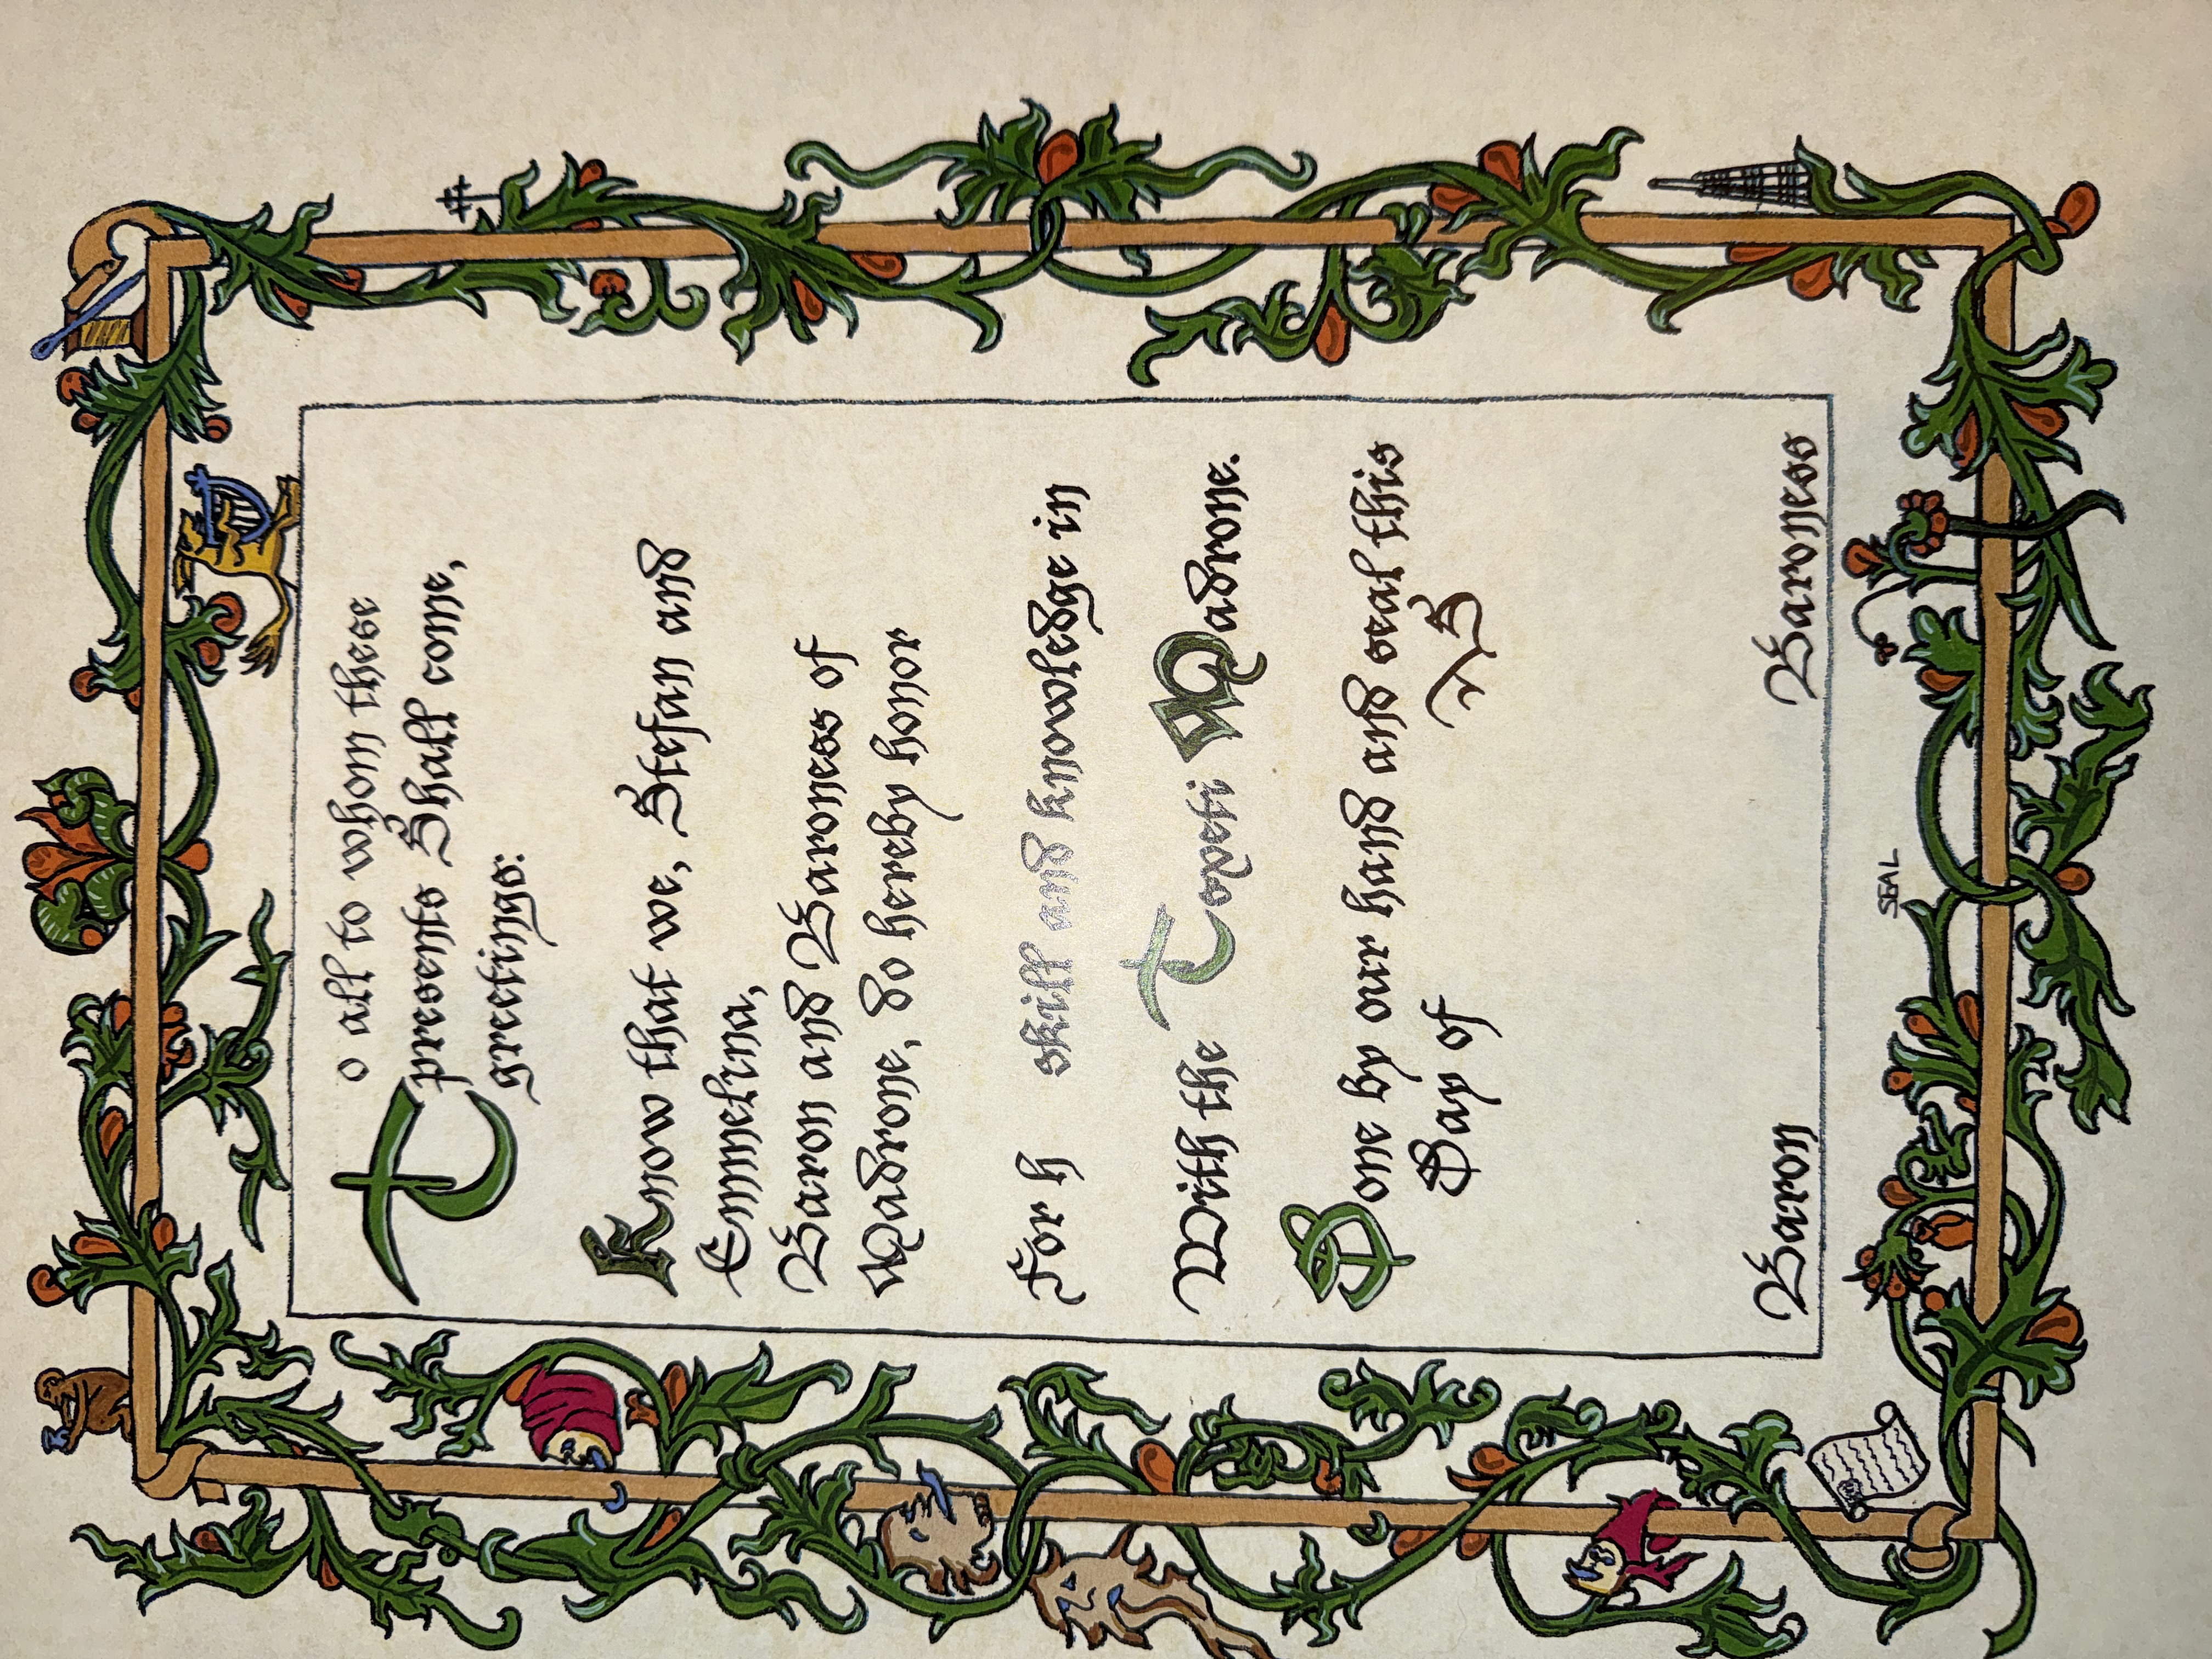 To all to whom these
presents Shall come,
greetings:
Know that we, Stefan and
Emmelina,
Baron and Baroness of
Madrone, do hereby honor
For h skill and knowledge in
With the Toveti Madrone.
Done by our hand and seal this
Day of AS
Baron Baroness
SEAL